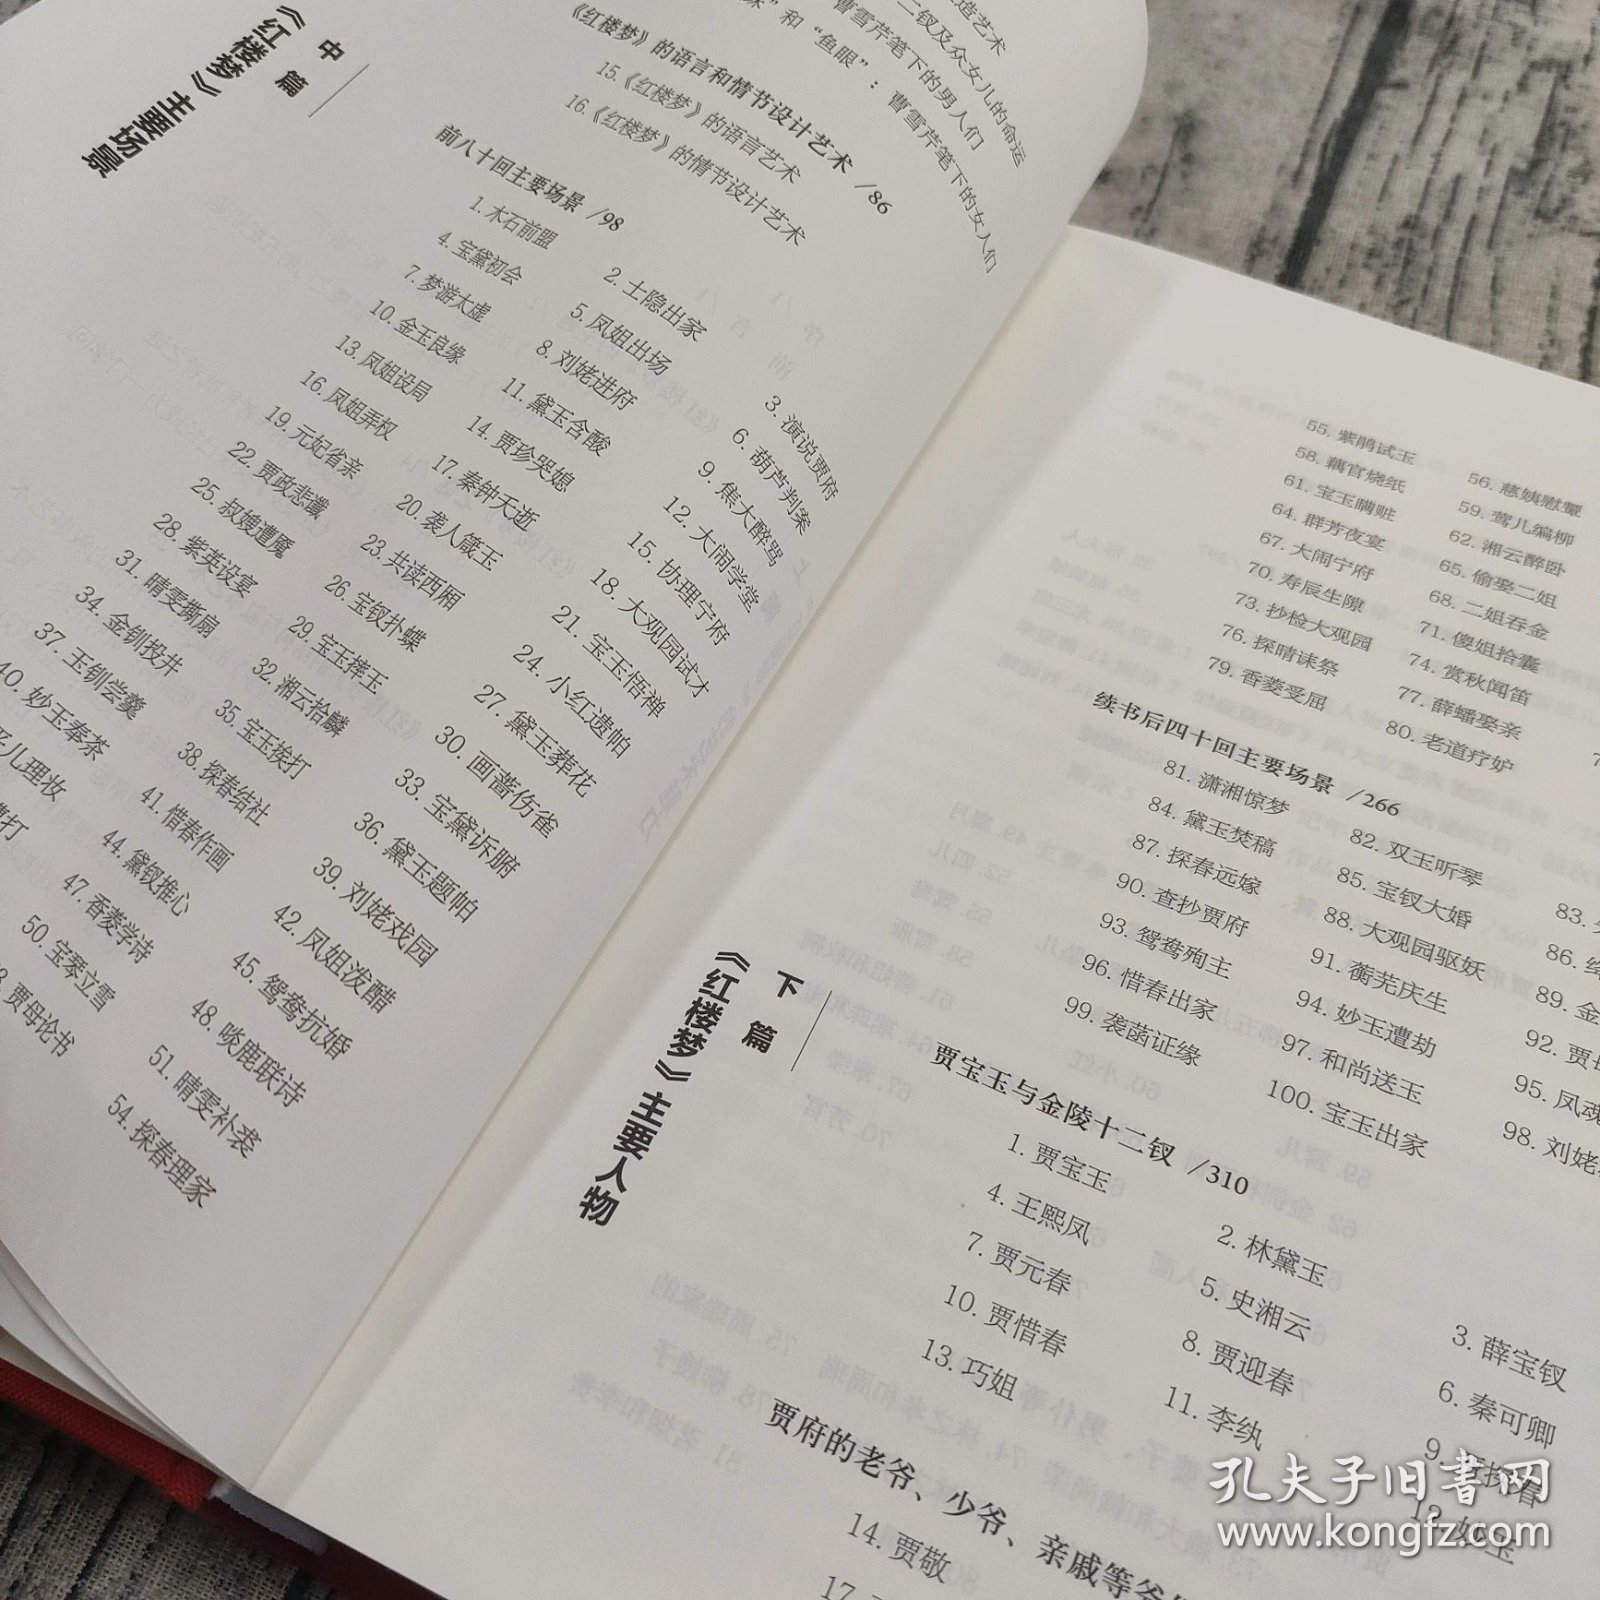 造艺术
二钗及众女儿的命运
曹雪芹笔下的男人们
”和“鱼眼”：曹雪芹笔下的女人们
《红楼梦》的语言和情节设计艺术 /86
15.《红楼梦》的语言艺术
16.《红楼梦》的情节设计艺术
中篇
《红楼梦》主要场景
前八十回主要场景 /98
1. 木石前盟 2. 士隐出家 3. 演说贾府
4. 宝黛初会 5. 凤姐出场 6. 葫芦判案
7. 梦游太虚 8. 刘姥进府 9. 焦大醉骂
10. 金玉良缘 11. 黛玉含酸 12. 大闹学堂
13. 凤姐设局 14. 贾珍哭媳 15. 协理宁府
16. 凤姐弄权 17. 秦钟夭逝 18. 大观园试才
19. 元妃省亲 20. 袭人箴玉 21. 宝玉悟禅
22. 贾政悲谶 23. 共读西厢 24. 小红遗帕
25. 叔嫂遭魇 26. 宝钗扑蝶 27. 黛玉葬花
28. 紫英设宴 29. 宝玉摔玉 30. 画蔷伤雀
31. 晴雯撕扇 32. 湘云拾麟 33. 宝黛诉腑
34. 金钏投井 35. 宝玉挨打 36. 黛玉题帕
37. 玉钏尝羹 38. 探春结社 39. 刘姥戏园
40. 妙玉奉茶 41. 惜春作画 42. 凤姐泼醋
平儿理妆 44. 黛钗推心 45. 鸳鸯抗婚
打 47. 香菱学诗 48. 啖鹿联诗
50. 宝琴立雪 51. 晴雯补裘
贾母论书 54. 探春理家
55. 紫鹃试玉 56. 慈姨慰颦
58. 藕官烧纸 59. 莺儿编柳
61. 宝玉瞒赃 62. 湘云醉卧
64. 群芳夜宴 65. 偷娶二姐
67. 大闹宁府 68. 二姐吞金
70. 寿辰生隙 71. 傻姐拾囊
73. 抄检大观园 74. 赏秋闻笛
76. 探晴诔祭 77. 薛蟠娶亲
79. 香菱受屈 80. 老道疗妒
续书后四十回主要场景 /266
81. 潇湘惊梦 82. 双玉听琴 83.
84. 黛玉焚稿 85. 宝钗大婚 86.
87. 探春远嫁 88. 大观园驱妖 89. 金
90. 查抄贾府 91. 蘅芜庆生 92. 贾母
93. 鸳鸯殉主 94. 妙玉遭劫 95. 凤魂
96. 惜春出家 97. 和尚送玉 98. 刘姥
99. 袭菡证缘 100. 宝玉出家
下篇
《红楼梦》主要人物
贾宝玉与金陵十二钗 /310
1. 贾宝玉 2. 林黛玉 3. 薛宝钗
4. 王熙凤 5. 史湘云 6. 秦可卿
7. 贾元春 8. 贾迎春 9. 贾探春
10. 贾惜春 11. 李纨 12. 妙玉
13. 巧姐
贾府的老爷、少爷、亲戚等爷
14. 贾敬
17.
孔夫子旧书网
www.kongfz.com